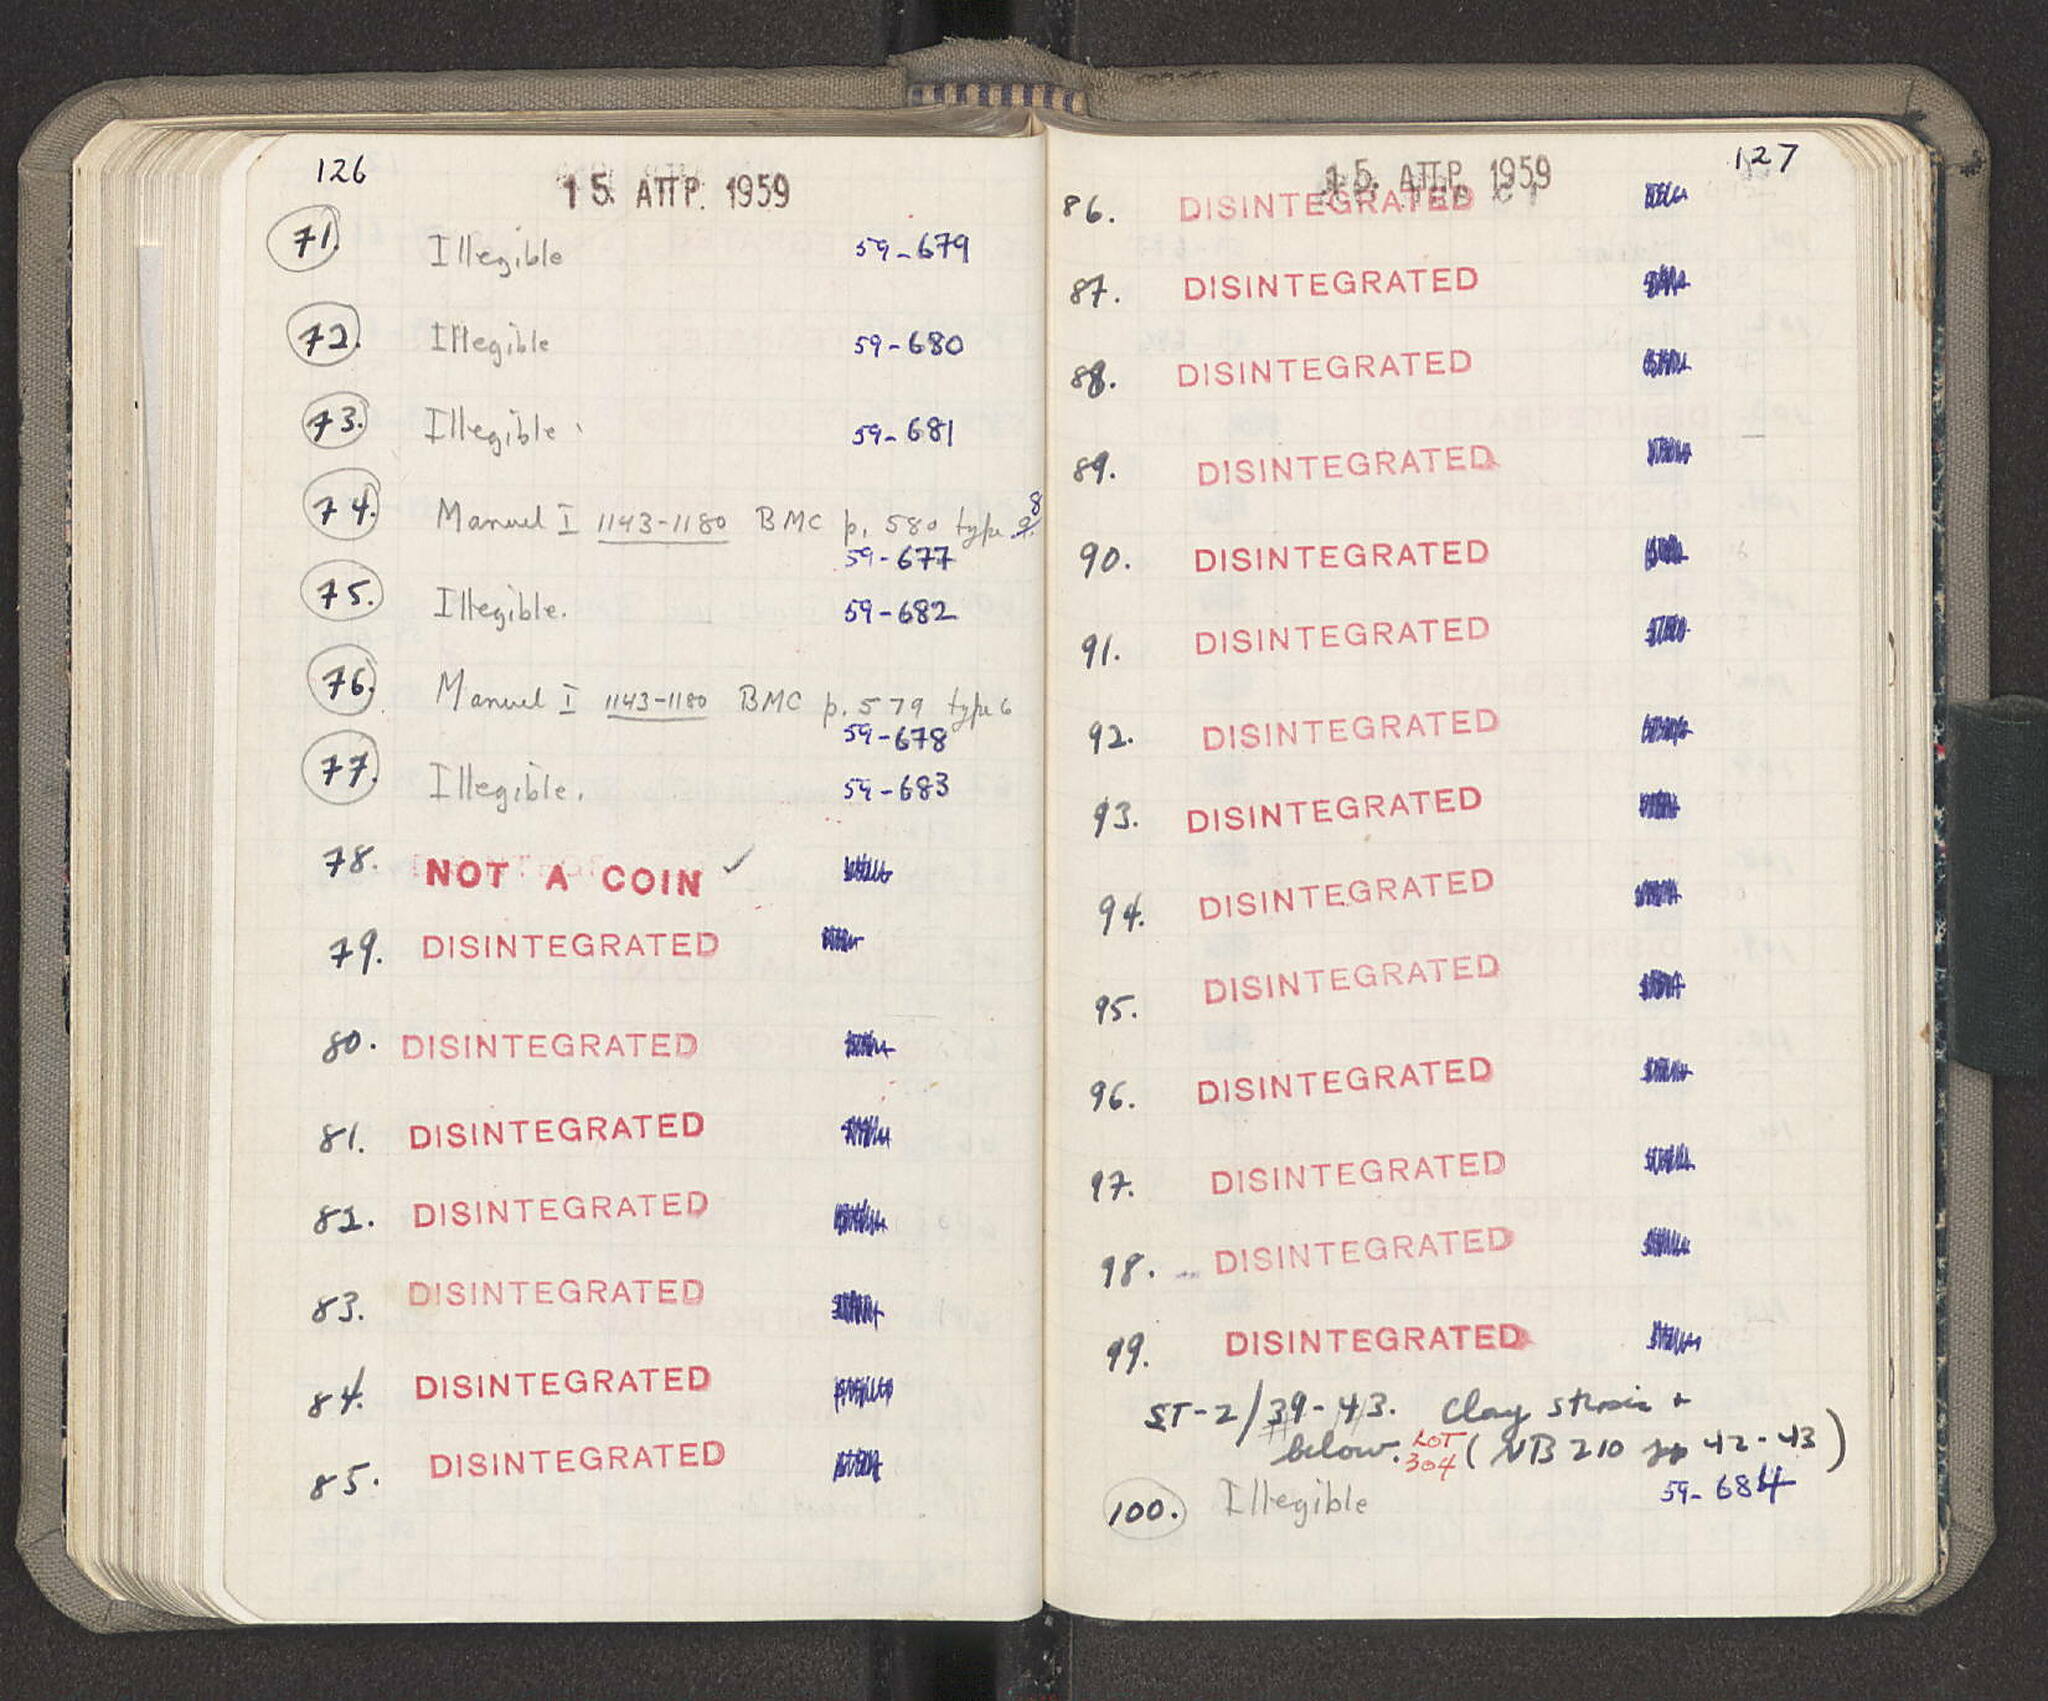 126
15. ΑΠΡ. 1959
71. Illegible 59-679
72. Illegible 59-680
73. Illegible. 59-681
74. Manuel I 1143-1180 BMC p. 580 type 8
59-677
75. Illegible. 59-682
76. Manuel I 1143-1180 BMC p. 579 type 6
59-678
77. Illegible. 59-683
78. NOT A COIN ✓
79. DISINTEGRATED
80. DISINTEGRATED
81. DISINTEGRATED
82. DISINTEGRATED
83. DISINTEGRATED
84. DISINTEGRATED
85. DISINTEGRATED
127
15. ΑΠΡ. 1959
86. DISINTEGRATED
87. DISINTEGRATED
88. DISINTEGRATED
89. DISINTEGRATED
90. DISINTEGRATED
91. DISINTEGRATED
92. DISINTEGRATED
93. DISINTEGRATED
94. DISINTEGRATED
95. DISINTEGRATED
96. DISINTEGRATED
97. DISINTEGRATED
98. DISINTEGRATED
99. DISINTEGRATED
ΣΤ-2/39-43. Clay +
below. LOT 304 (NB 210 pp 42-43)
59-684
100. Illegible